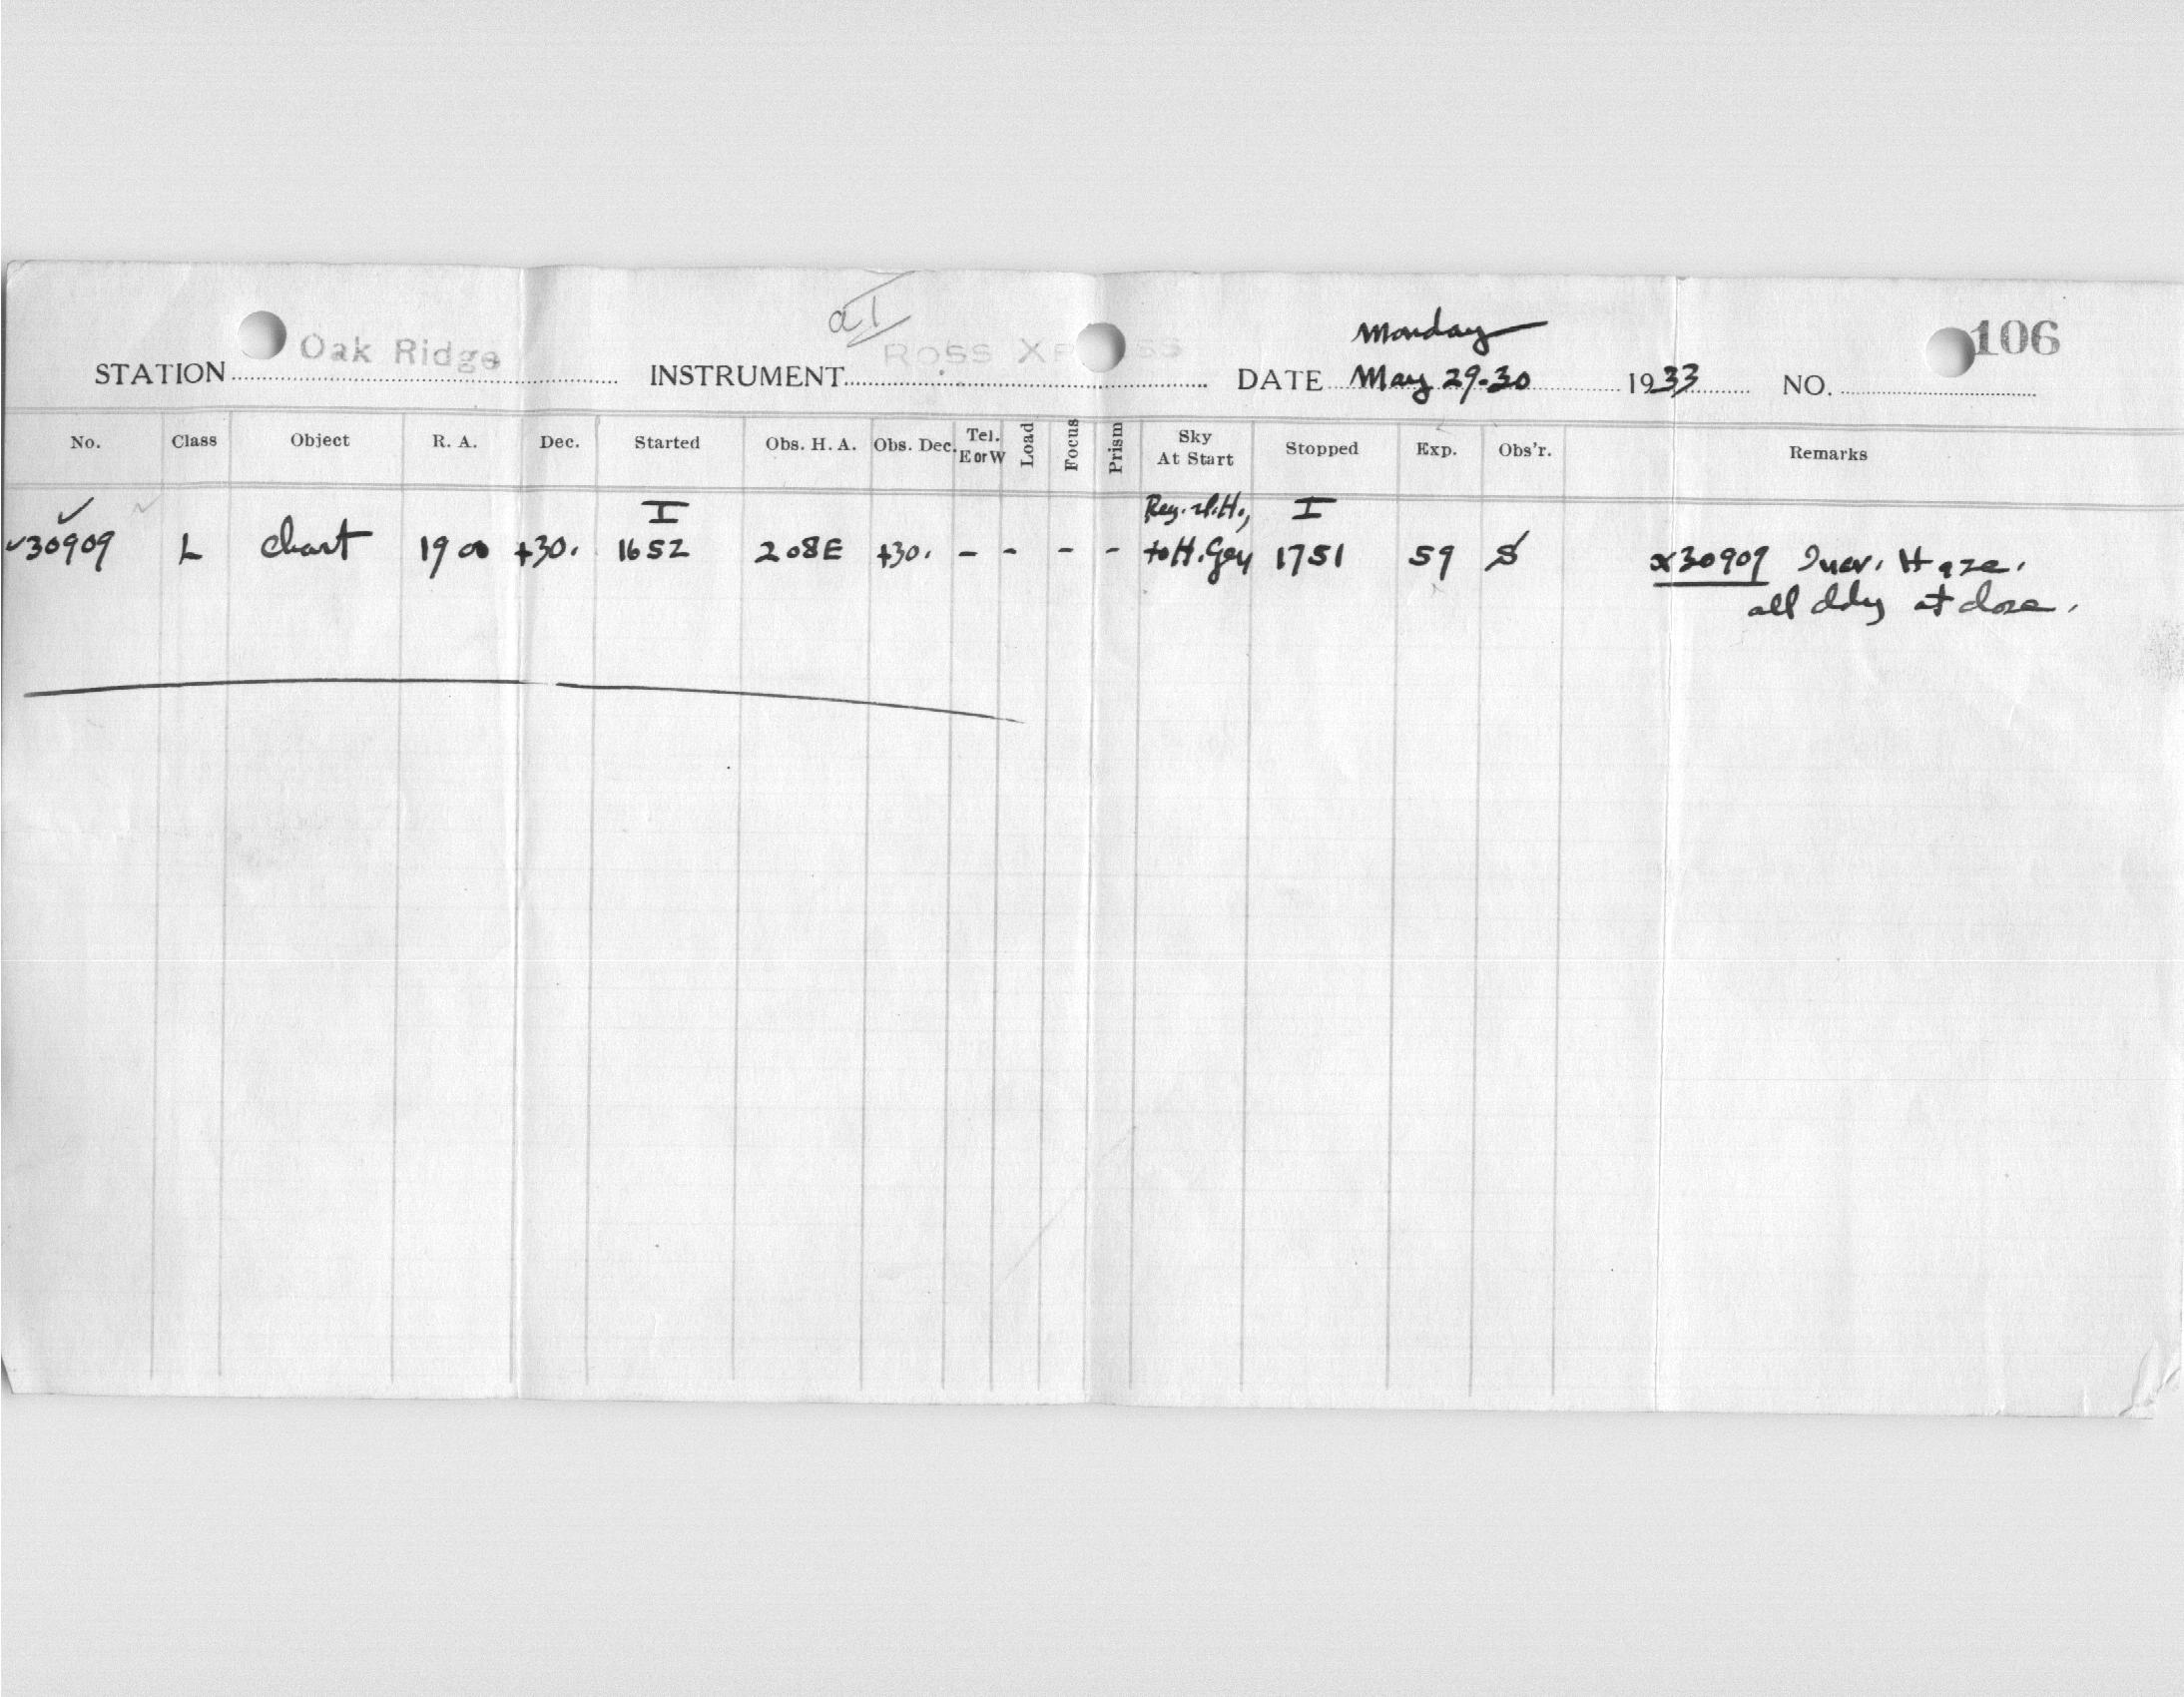 aI
Monday
STATION Oak Ridge INSTRUMENT ROSS XP SS DATE May 29-30 1933 NO. 106
No. Class Object R. A. Dec. Started Obs. H. A. Obs. Dec. Tel. E or W Load Focus Prism Sky At Start Stopped Exp. Obs'r. Remarks
I I
30909 L Chart 19 00 +30. 1652 208E +30. - - - - to H. 1751 59 S 30909 Incr. Haze.
all cldy at close.